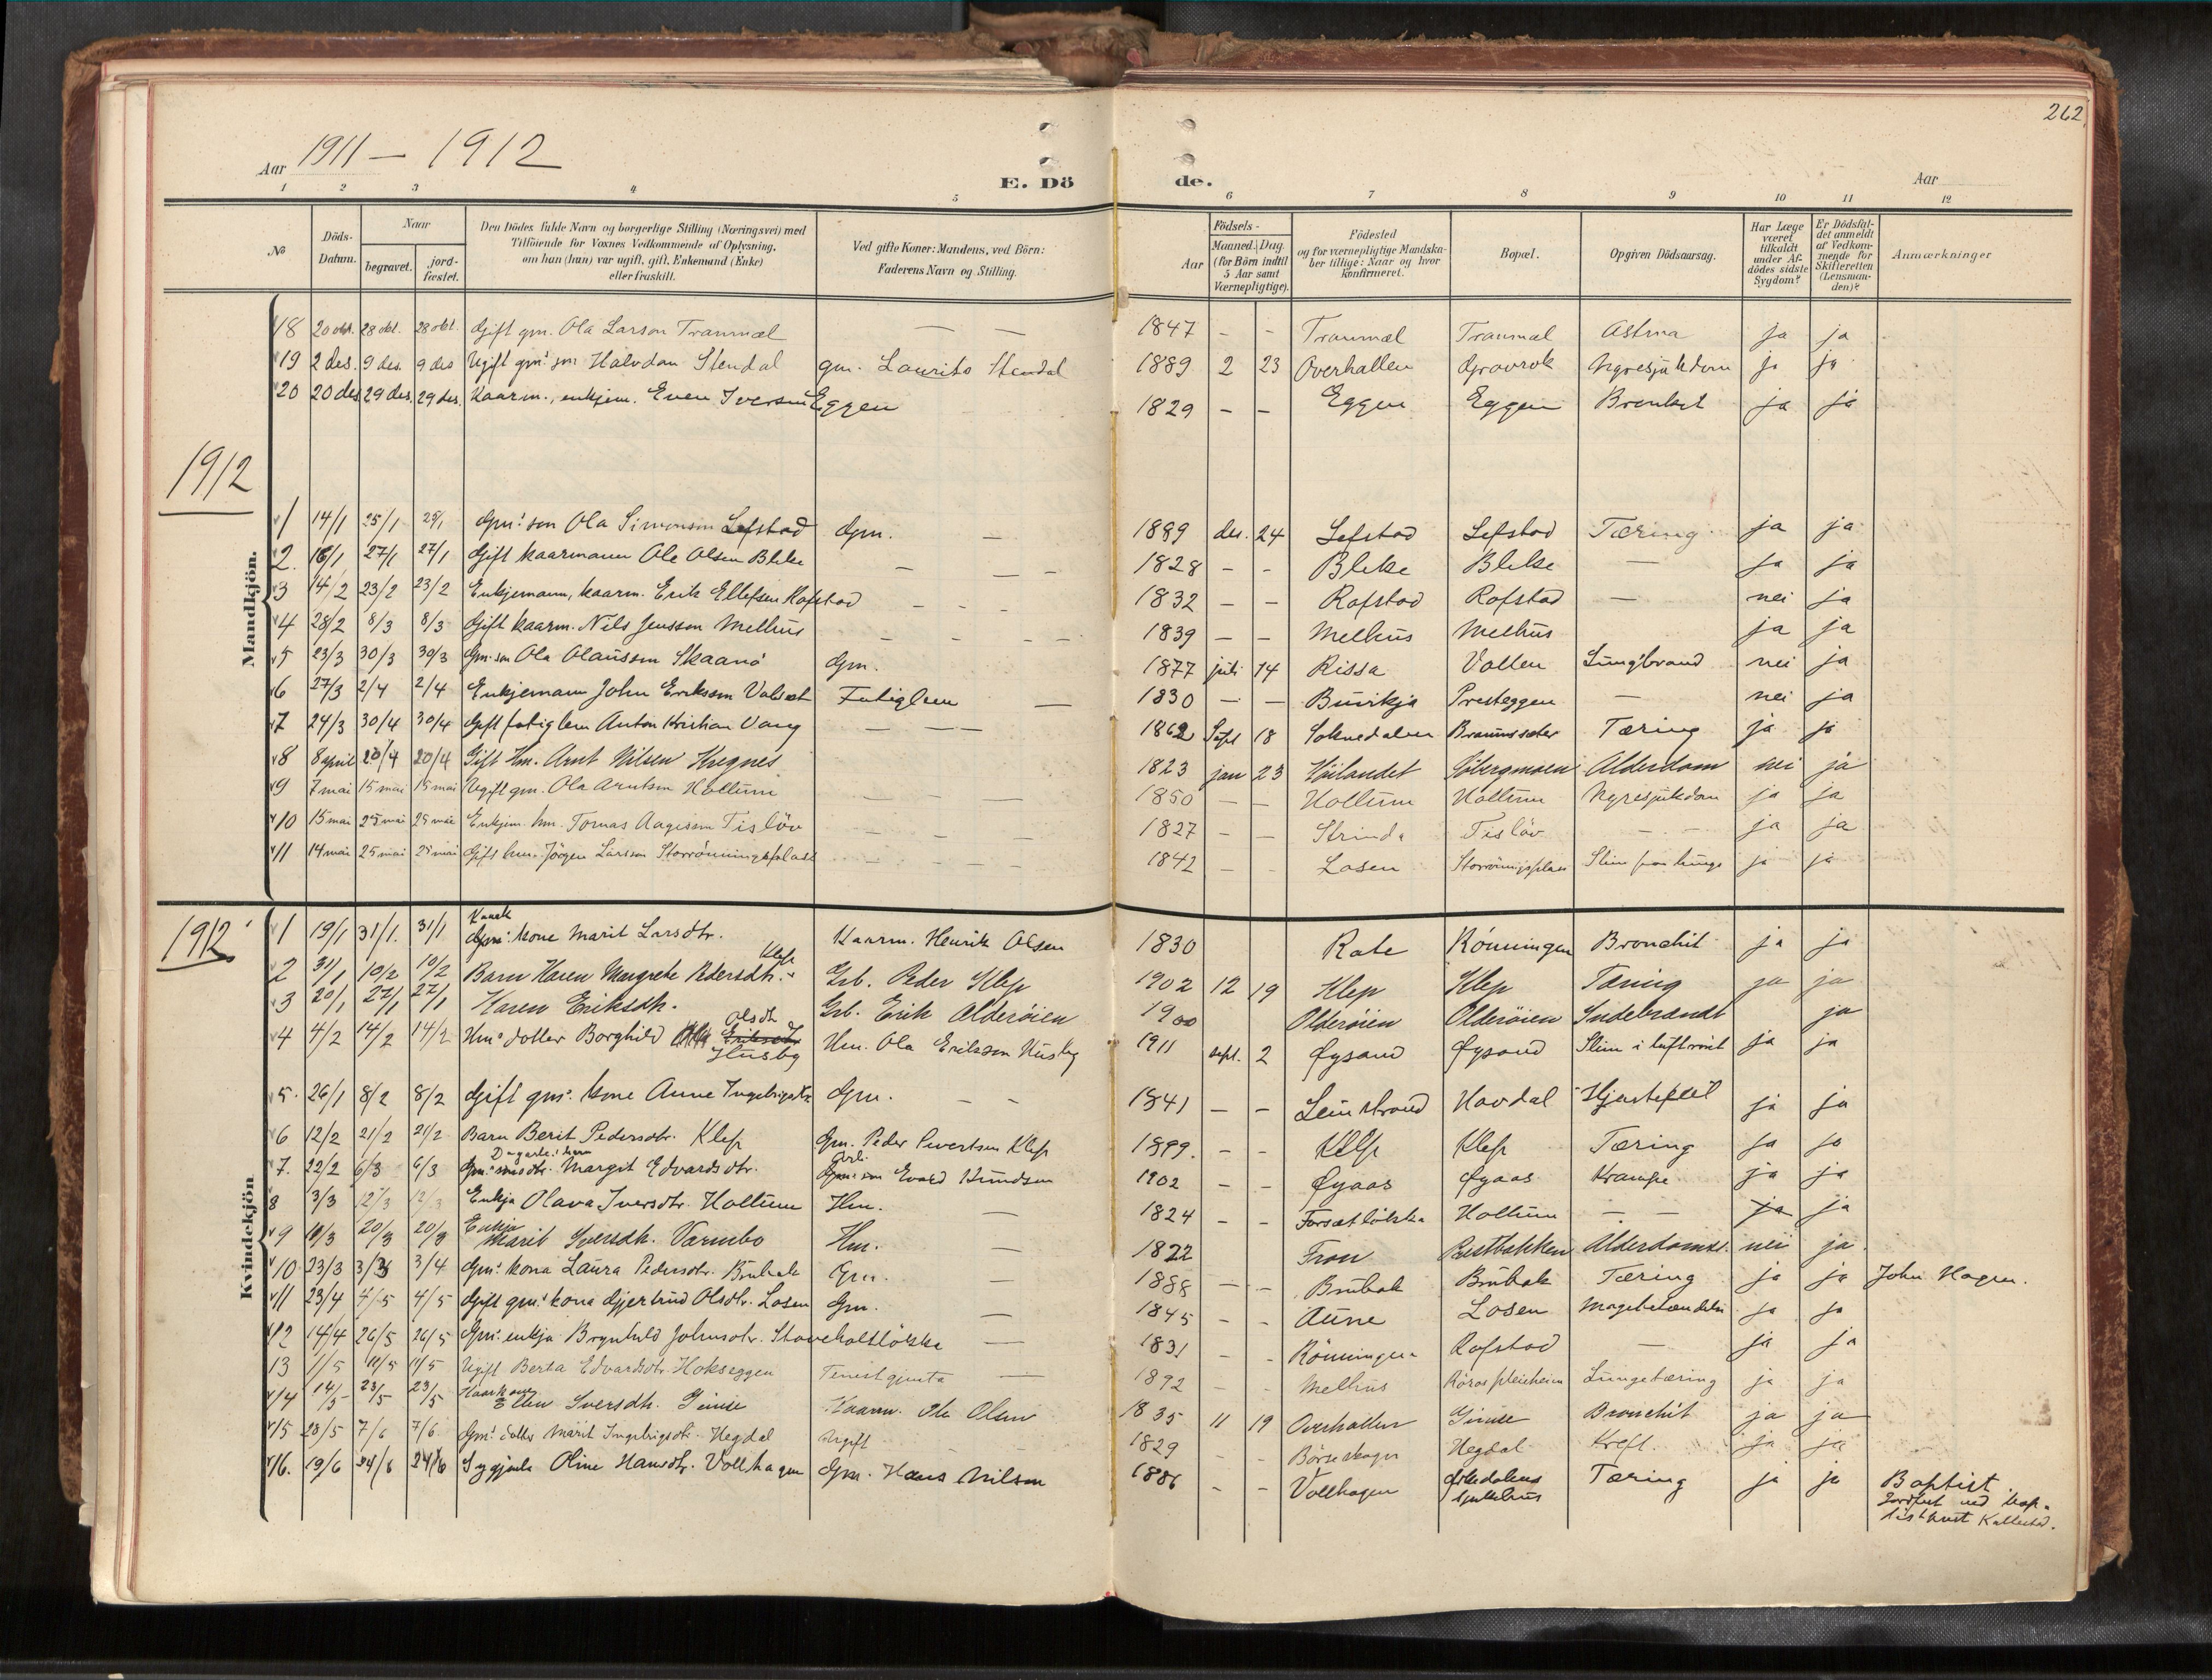 262
Aar 1911 – 1912
E. Dö de.
Aar
1 2 3 4 5 6 7 8 9 10 11 12
No
Döds-Datum.
Naar
begravet.
jord-fæstet.
Den Dödes fulde Navn og borgerlige Stilling (Næringsvei) med Tilföiende for Voxnes Vedkommende af Oplysning, om han (hun) var ugift, gift, Enkemand (Enke) eller fraskilt.
Ved gifte Koner: Mandens, ved Börn: Faderens Navn og Stilling.
Födsels-
Aar
Maaned. Dag. (for Börn indtil 5 Aar samt Værnepligtige).
Födested og for værnepligtige Mandskaber tillige: Naar og hvor konfirmeret.
Bopæl.
Opgiven Dödsaarsag.
Har Læge været tilkaldt under Afdödes sidste Sygdom?
Er Dödsfaldet anmeldt af Vedkommende for Skifteretten (Lensmanden)?
Anmærkninger
Mandkjön.
18 20 okt. 28 okt. 28 okt. Gift gm. Ola Larson Tranmæl — — 1847 - - Tranmæl Tranmæl Astma ja ja
19 2 des. 9 des. 9 des Ugift gm's son Halvdan Stendal gm. Laurits Stendal 1889 2 23 Overhallen Gravrok Nyresjukdom ja ja
20 20 des 29 des. 29 des. Kaarm., enkjem. Even Iversen Eggen 1829 - - Eggen Eggen Bronkit ja ja
1912
1 14/1 25/1 25/1 Gm's son Ola Simonson Lefstad Gm. — 1889 des. 24 Lefstad Lefstad Tæring ja ja
2. 16/1 27/1 27/1 Gift kaarmann Ole Olsen Bleke — — — 1828 - - Bleke Bleke — ja ja
3 14/2 23/2 23/2 Enkjemann, kaarm. Erik Ellefsen Rofstad - - - 1832 - - Rofstad Rofstad — nei ja
4 28/2 8/3 8/3 Gift kaarm. Nils Jensson Melhus - - - - 1839 - - Melhus Melhus ja ja
5 23/3 30/3 30/3 Gm. son Ola Olausson Skaanö Gm. 1877 juli 14 Rissa Vollen Lungbrand nei ja
6 27/3 2/4 2/4 Enkjemann John Eriksson Valset Fatiglem — 1830 - - Buvikja Presteggen — nei ja
7 24/3 30/4 30/4 Gift fatiglem Anton Kristian Vang — — — 1862 Sept 18 Soknedalen Tæring ja ja
8 8 april 20/4 20/4 Gift Hm. Arnt Nilsen Kregnes 1823 jan 23 Höilandet Söbergmoen Alderdom nei ja
9 7 mai 15 mai 15 mai Ugift gm. Ola Arntsen Hollum — — — 1850 - - Hollum Hollum Nyresjukdom ja ja
10 15 mai 25 mai 25 mai Enkjem. hm. Tomas Aagisson Tislöv - - - - 1827 - - Strinda Tislöv - - ja ja
11 14 mai 25 mai 25 mai Gift hm. Jörgen Larsson Storrönningsplass - - - - 1842 - - Losen Storröningsplass Slim paa lunge ja ja
1912
Kvindekjön
1 19/1 31/1. 31/1 Kaark Gm's kone Marit Larsdtr. Kaarm. Henrik Olsen 1830 Rate Rönningen Bronchit ja ja
2 31/1 10/2 10/2 Barn Karen Margrete Pedersdtr. Klep Grb. Peder Klep 1902 12 19 Klep Klep Tæring ja ja
3 20/1 27/1 27/1 Karen Eriksdtr. Grb. Erik Olderöien 1900 Olderöien Olderöien Indebrandt ja
4 4/2 14/2 14/2 Hm's dotter Borghild Olsdtr Eriksdtr Husby Hm. Ola Eriksson Husby 1911 sept. 2 Øysand Øysand Slim i luftröret ja ja
5. 26/1 8/2 8/2 Gift gm's kone Anne Ingebrigtsdtr Gm. - - 1841 - - Leinstrand Havdal Hjertefeil ja ja
6 12/2 21/2 21/2 Barn Berit Pedersdtr. Klep Gm. Peder Sivertsen Klep 1899. - - Klep Klep Tæring ja ja
7. 22/2 6/3 6/3 Margit Edvardsdtr. Evard Knudsen 1902 - - Øyaas Øyaas Krampe ja ja
8 3/3 12/3 12/3 Enkja Olava Iversdtr. Hollum Hm. — 1824 - - Forsetlökka Hollum - - ja ja
9 10/3 20/3 20/3 Enkja Marit Iversdtr. Varmbo Hm. — 1822 Fron Restbakken Alderdoms. nei ja
10 23/3 3/4 3/4 Gm's kona Laura Pedersdtr. Brubak Gm. — 1888 - - Brubak Brubak Tæring ja ja John Hagen.
11 23/4 4/5 4/5 Gift gm's kona Gjertrud Olsdtr. Losen Gm. — 1845 - - Aune Losen Magebetændelse ja ja
12 14/4 26/5 26/5 Gm's enkja Brynhild Johnsdtr. Stavehaltlökka — 1831 - - Rönningen Rofstad — ja ja
13 1/5 11/5 11/5 Ugift Berta Edvardsdtr. Hokseggen Tenestgjenta — 1892 - - Melhus Röros pleieheim Lungetæring ja ja
14 14/5 23/5 23/5 Kaarkone Ellen Iversdtr. Gimse Kaarm. Ole Olsen 1835 11 19 Overhallen Gimse Bronchit ja ja
15 28/5 7/6 7/6 Gm's dotter Marit Ingebrigtsdtr. Hegdal Ugift - - 1829 - - Börseskogn Hegdal Kreft. ja ja
16. 19/6 24/6 24/6 Sygjenta Oline Hansdtr. Vollhagen Gm. Hans Nilsen 1886 - - Vollhagen Orkedalens sjukehus Tæring ja ja Baptist. Jordfest ved baptistprest Kallestad.